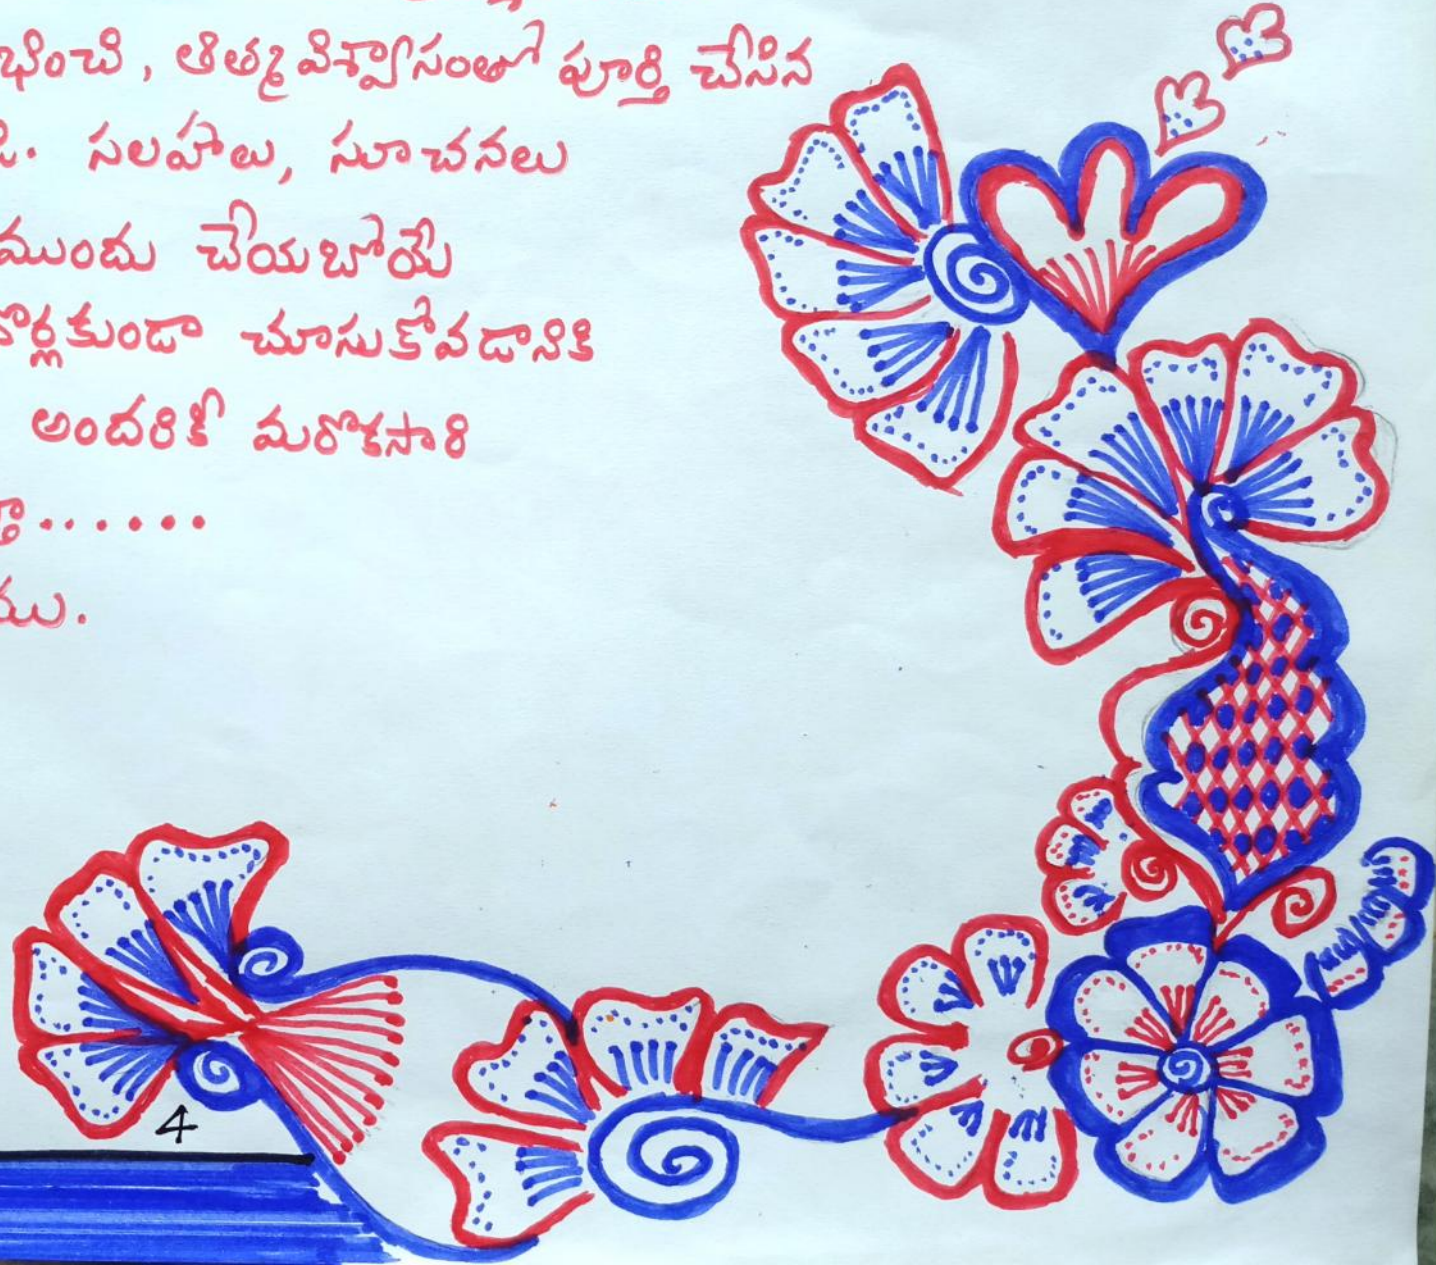 భించి, ఆత్మవిశ్వాసంతో పూర్తి చేసిన
సలహాలు, సూచనలు
ముందు చేయబోయే
దొర్లకుండా చూసుకోవడానికి
అందరికీ మరొకసారి
......
ము.
4